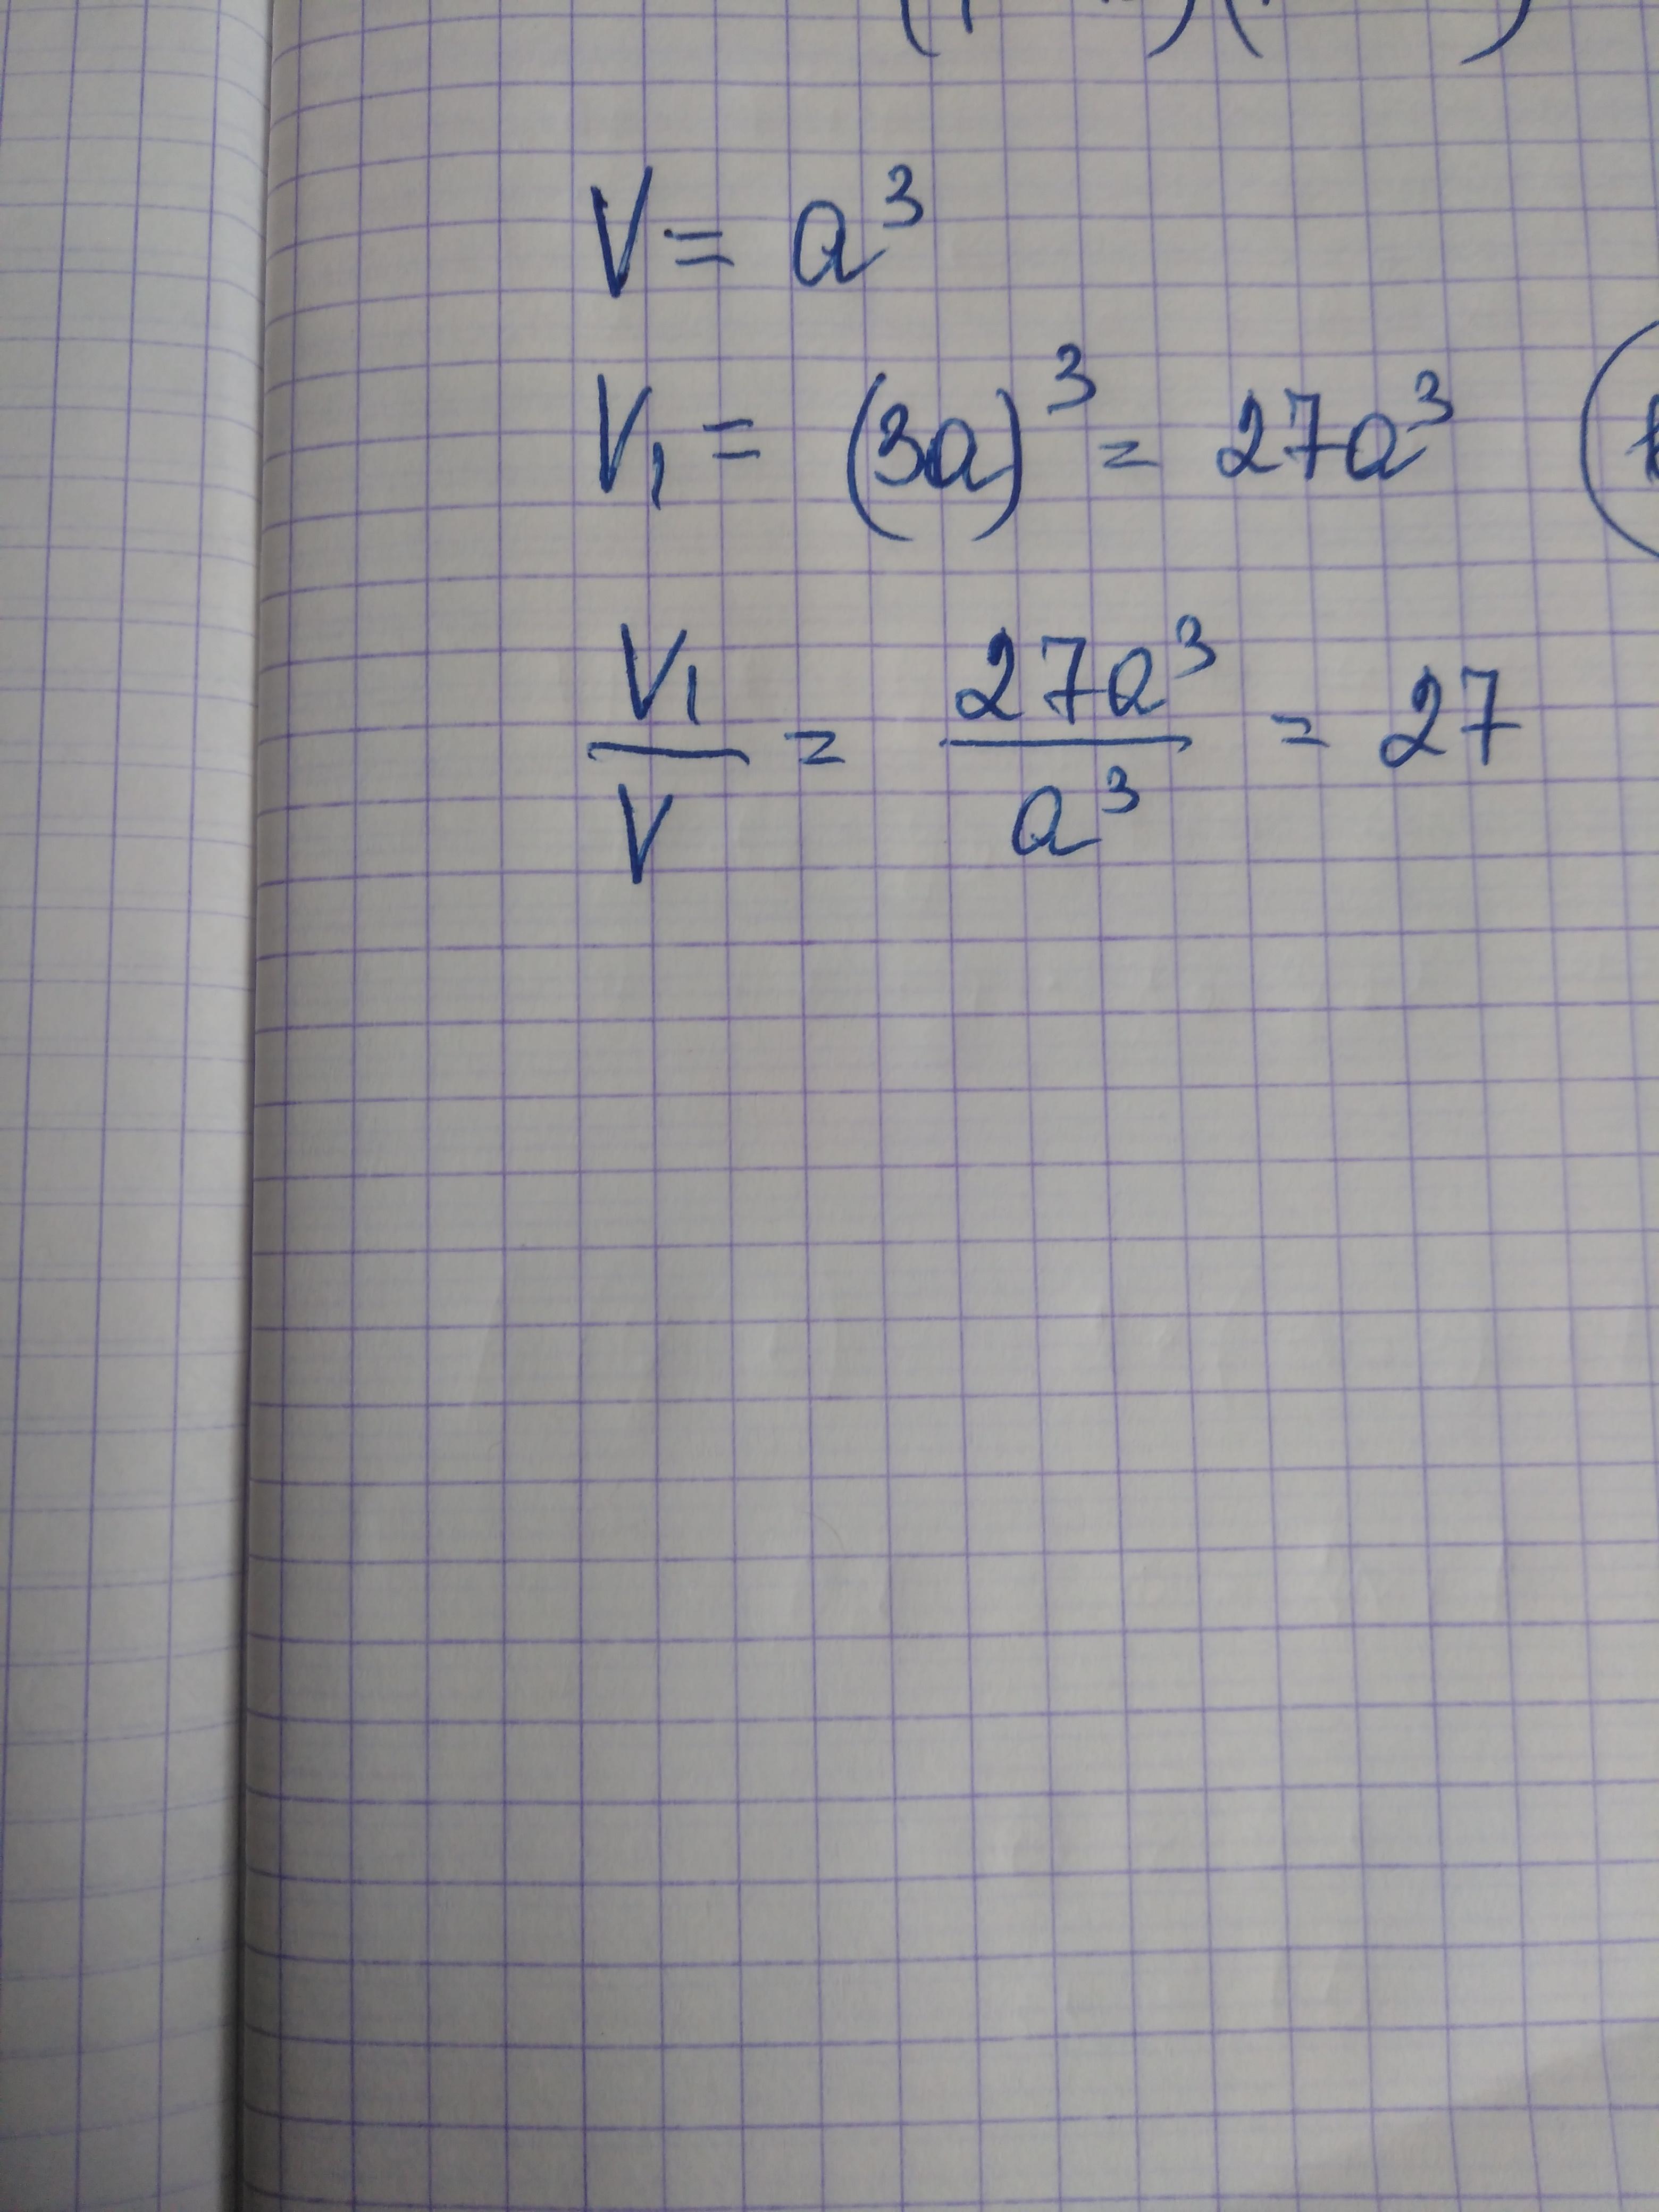 V = a³
V₁ = (3a)³ = 27a³
V₁/V = 27a³/a³ = 27